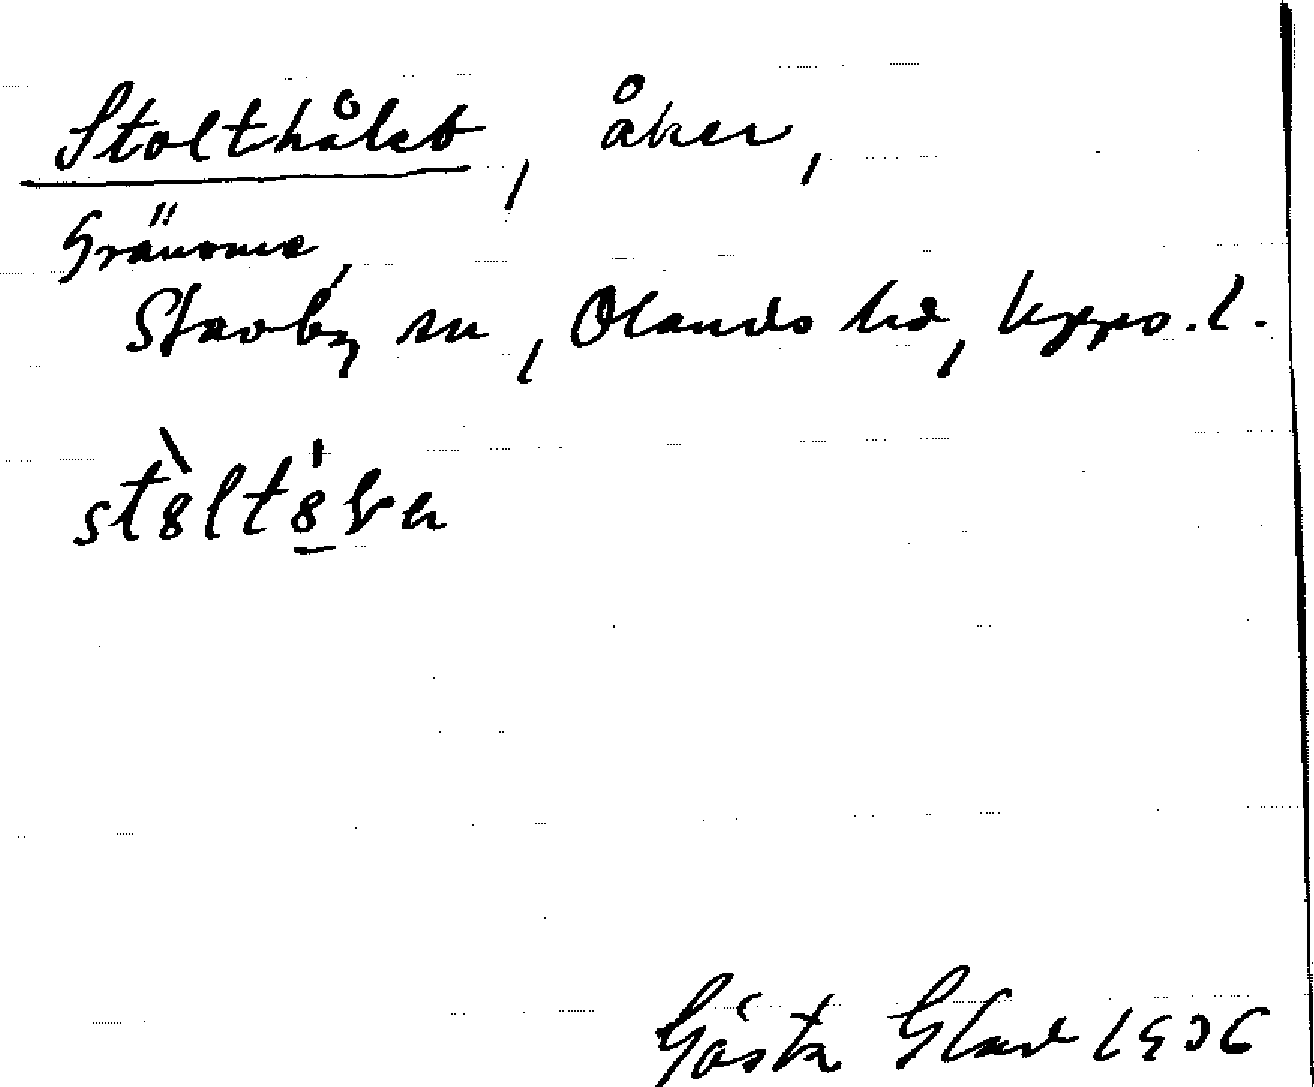 Stolthålet, åker,
Gränome,
Stavby sn, Olands hd, Upps. l.
Gösta Glad 1936